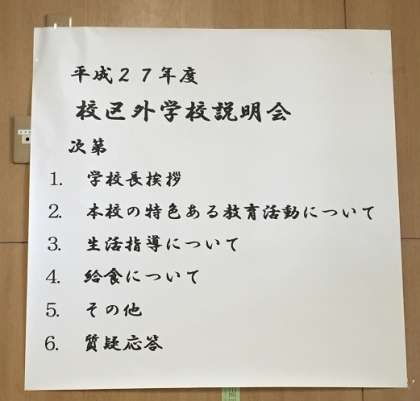 平成２７年度
校区外学校説明会
次第
1. 学校長挨拶
2. 本校の特色ある教育活動について
3. 生活指導について
4. 給食について
5. その他
6. 質疑応答